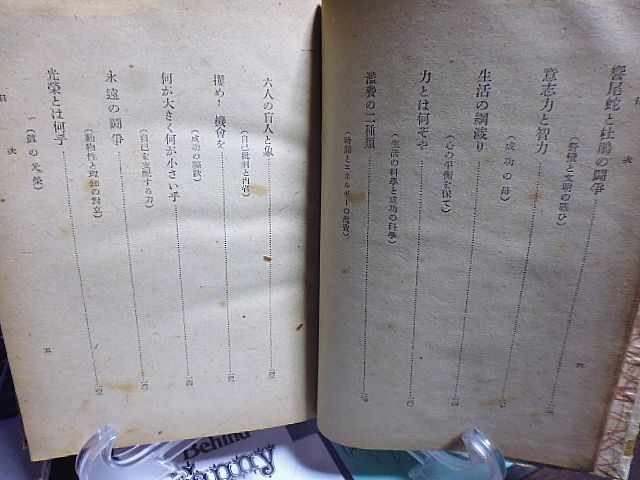 目次
響尾蛇と杜鵑の闘争
(野蠻と文明の戰ひ)
意志力と智力
(成功の母)
生活の綱渡り
(心の平衡を保て)
力とは何ぞや
(生活の科學と成功の科學)
濫費の二種類
(時間とエネルギーの濫費)
四
六人の盲人と象
(自己批判と内省)
摑め!機會を
(成功の秘訣)
何が大きく何が小さい乎
(自己を支配する力)
永遠の闘爭
(動物性と理知の對立)
光榮とは何乎
(眞の光榮)
目次
五
Behind